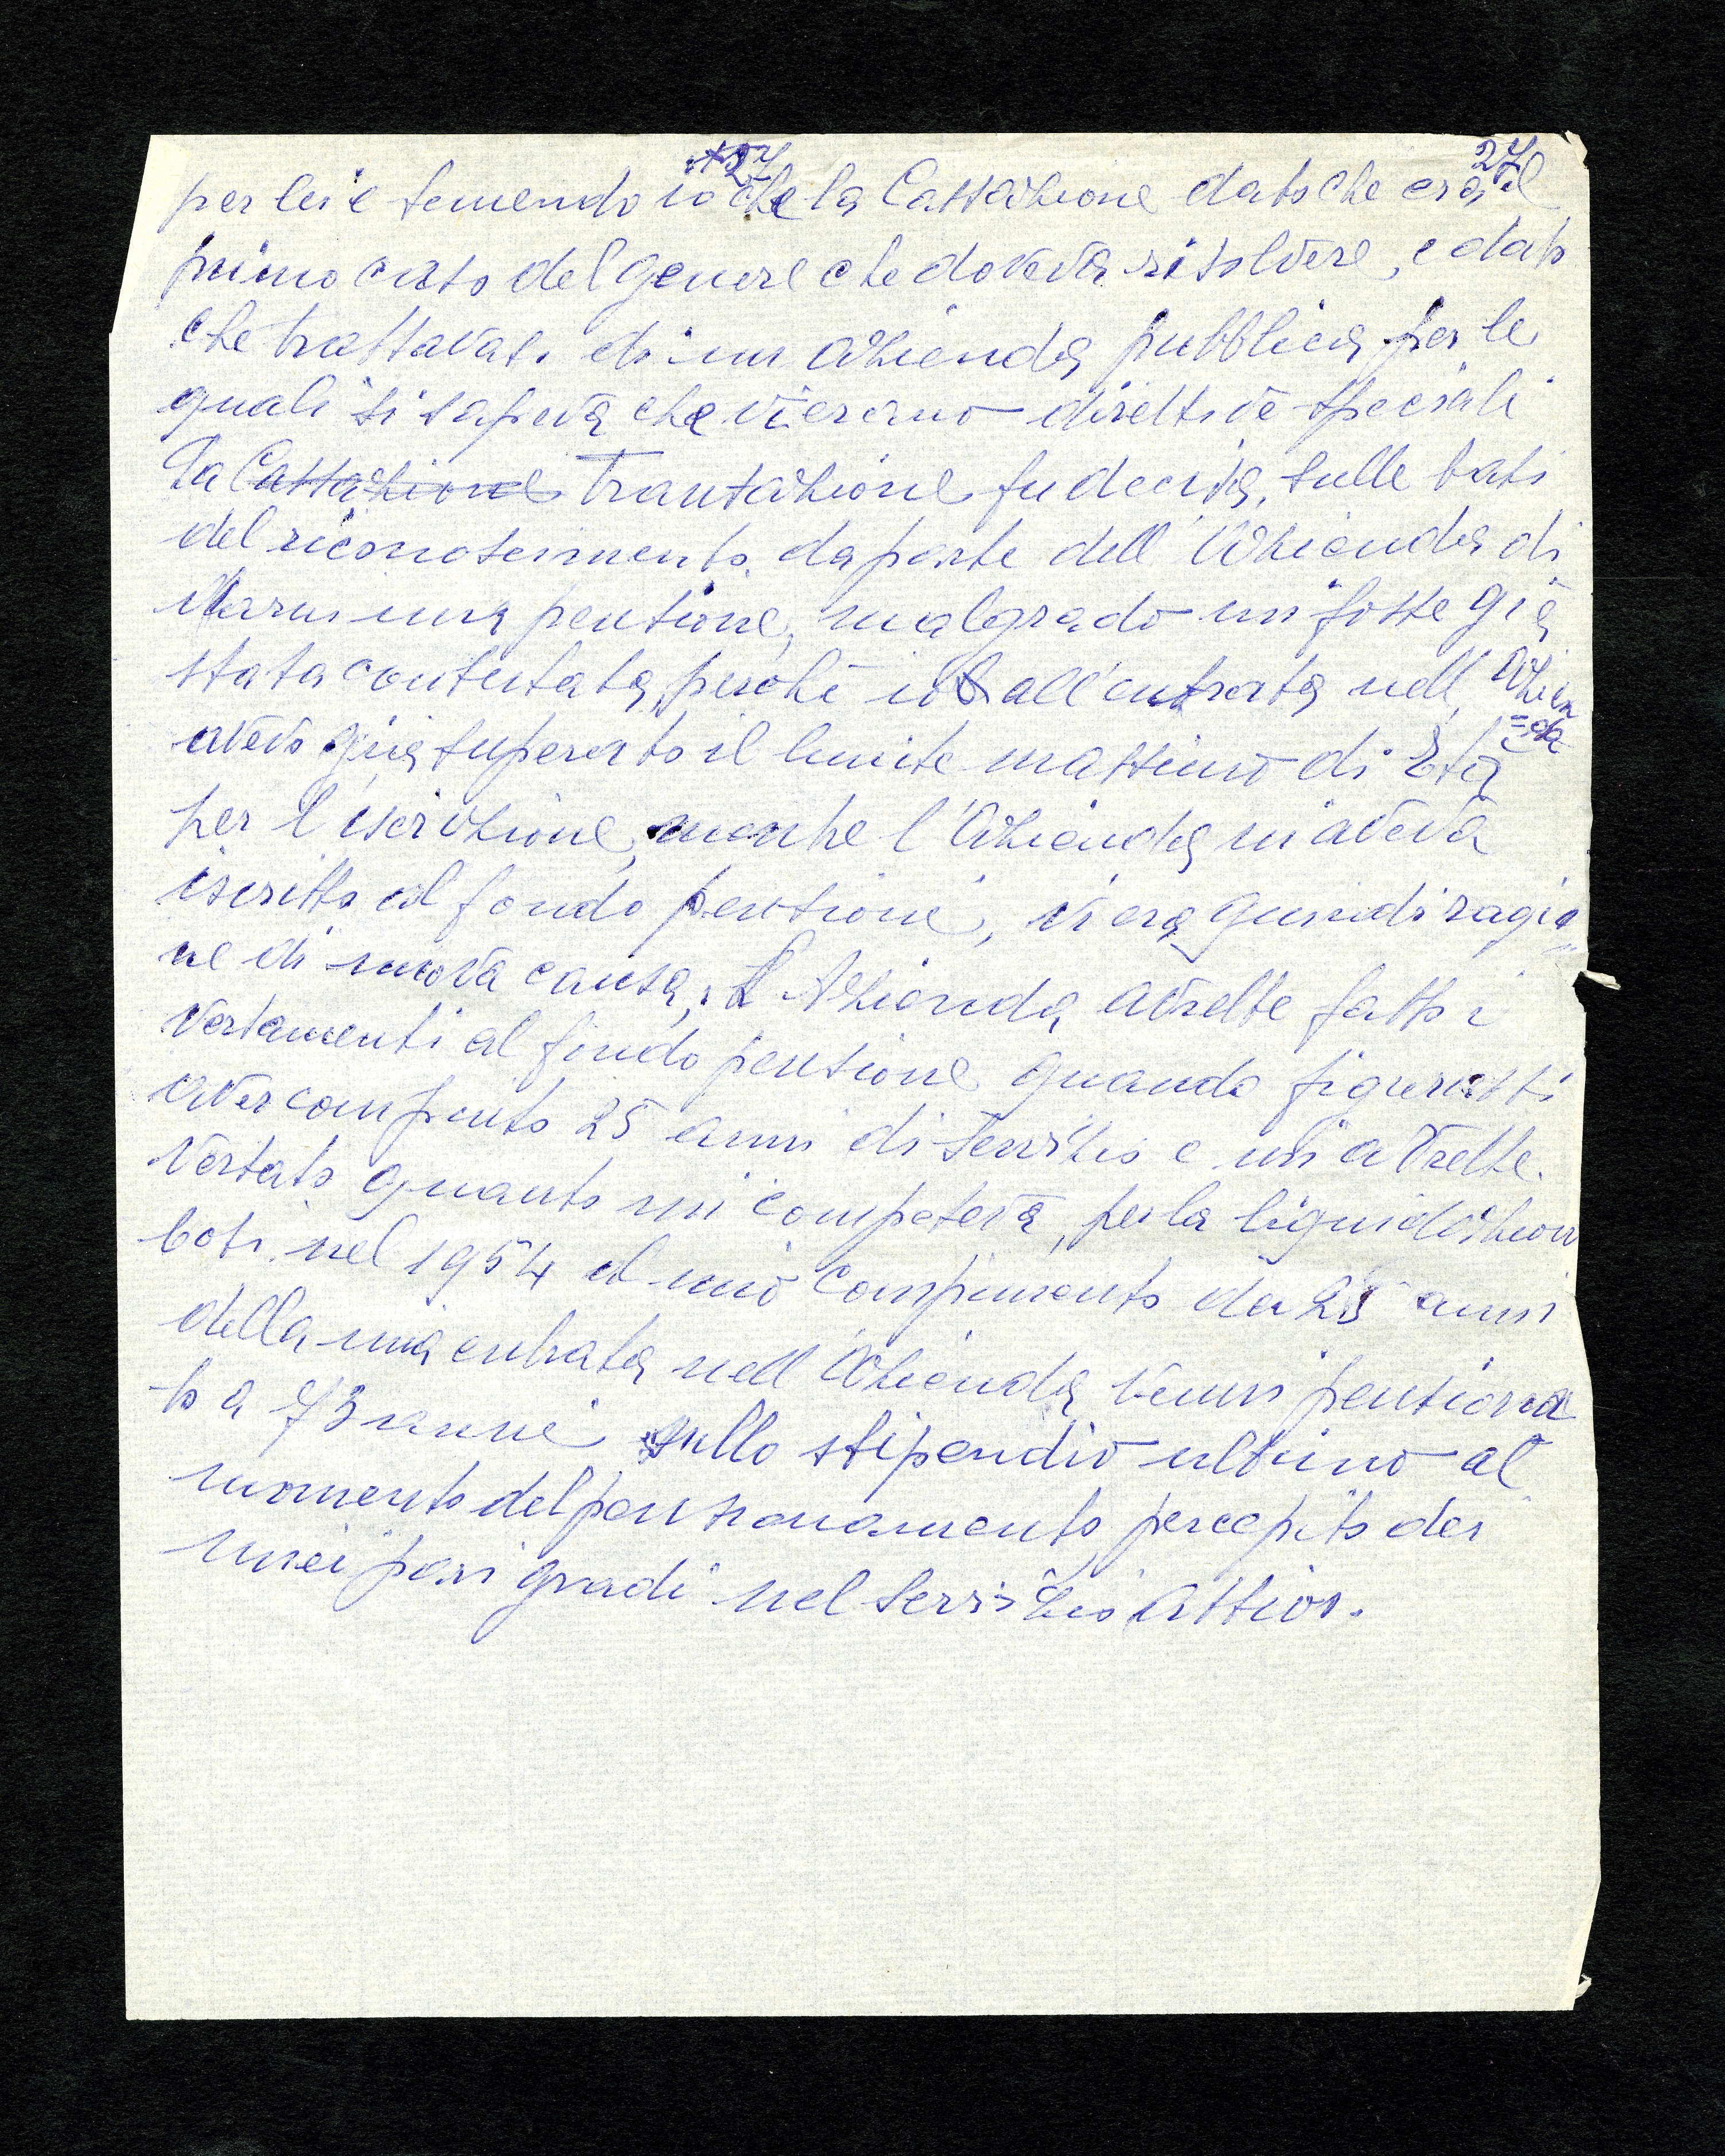 27 27
per lei e temendo io che la Cassazione dato che era il
primo caso del genere che doveva risolvere, e dato
che trattavasi di un azienda pubblica per le
quali si sapeva che vi erano direttive speciali
La Cassazione Transazione fu decisa, sulle basi
del riconoscimento, da parte dell'Azienda di
darmi una pensione, malgrado mi fosse già
stata contestata, perché io all'entrata nell'Azien
=da
avevo già superato il limite massimo di Età
per l'iscrizione, mentre l'Azienda mi aveva
iscritto al fondo pensioni, vi era quindi ragio=
ne di nuova causa, L'Azienda avrebbe fatto i
versamenti al fondo pensione quando figurassi
aver compiuto 25 anni di servizio e mi avrebbe
versato quanto mi competeva, per la liquidazion
Così nel 1954 al mio compimento dei 25 anni
della mia entrata nell'Azienda venni pensiona
to a 73 anni sullo stipendio ultimo al
momento del pensionamento percepito dai
miei pari gradi nel servizio attivo.